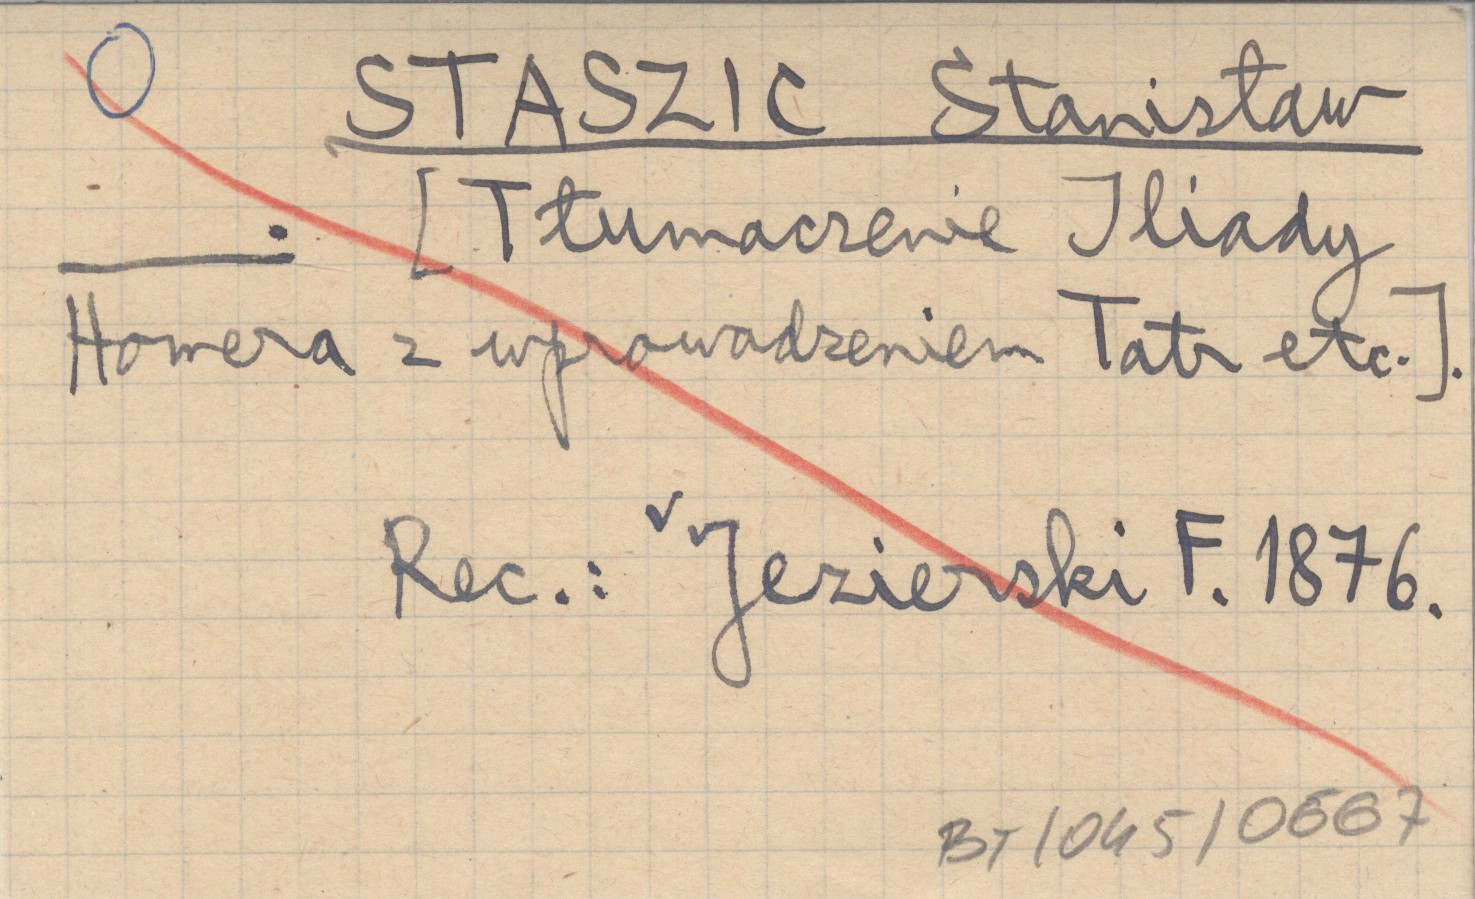 STASZIC Stanisław
_____: [Tłumaczenie Iliady
Homera z wprowadzeniem Tatr etc.].
Rec.: Jezierski F. 1876.
BT/045/0667